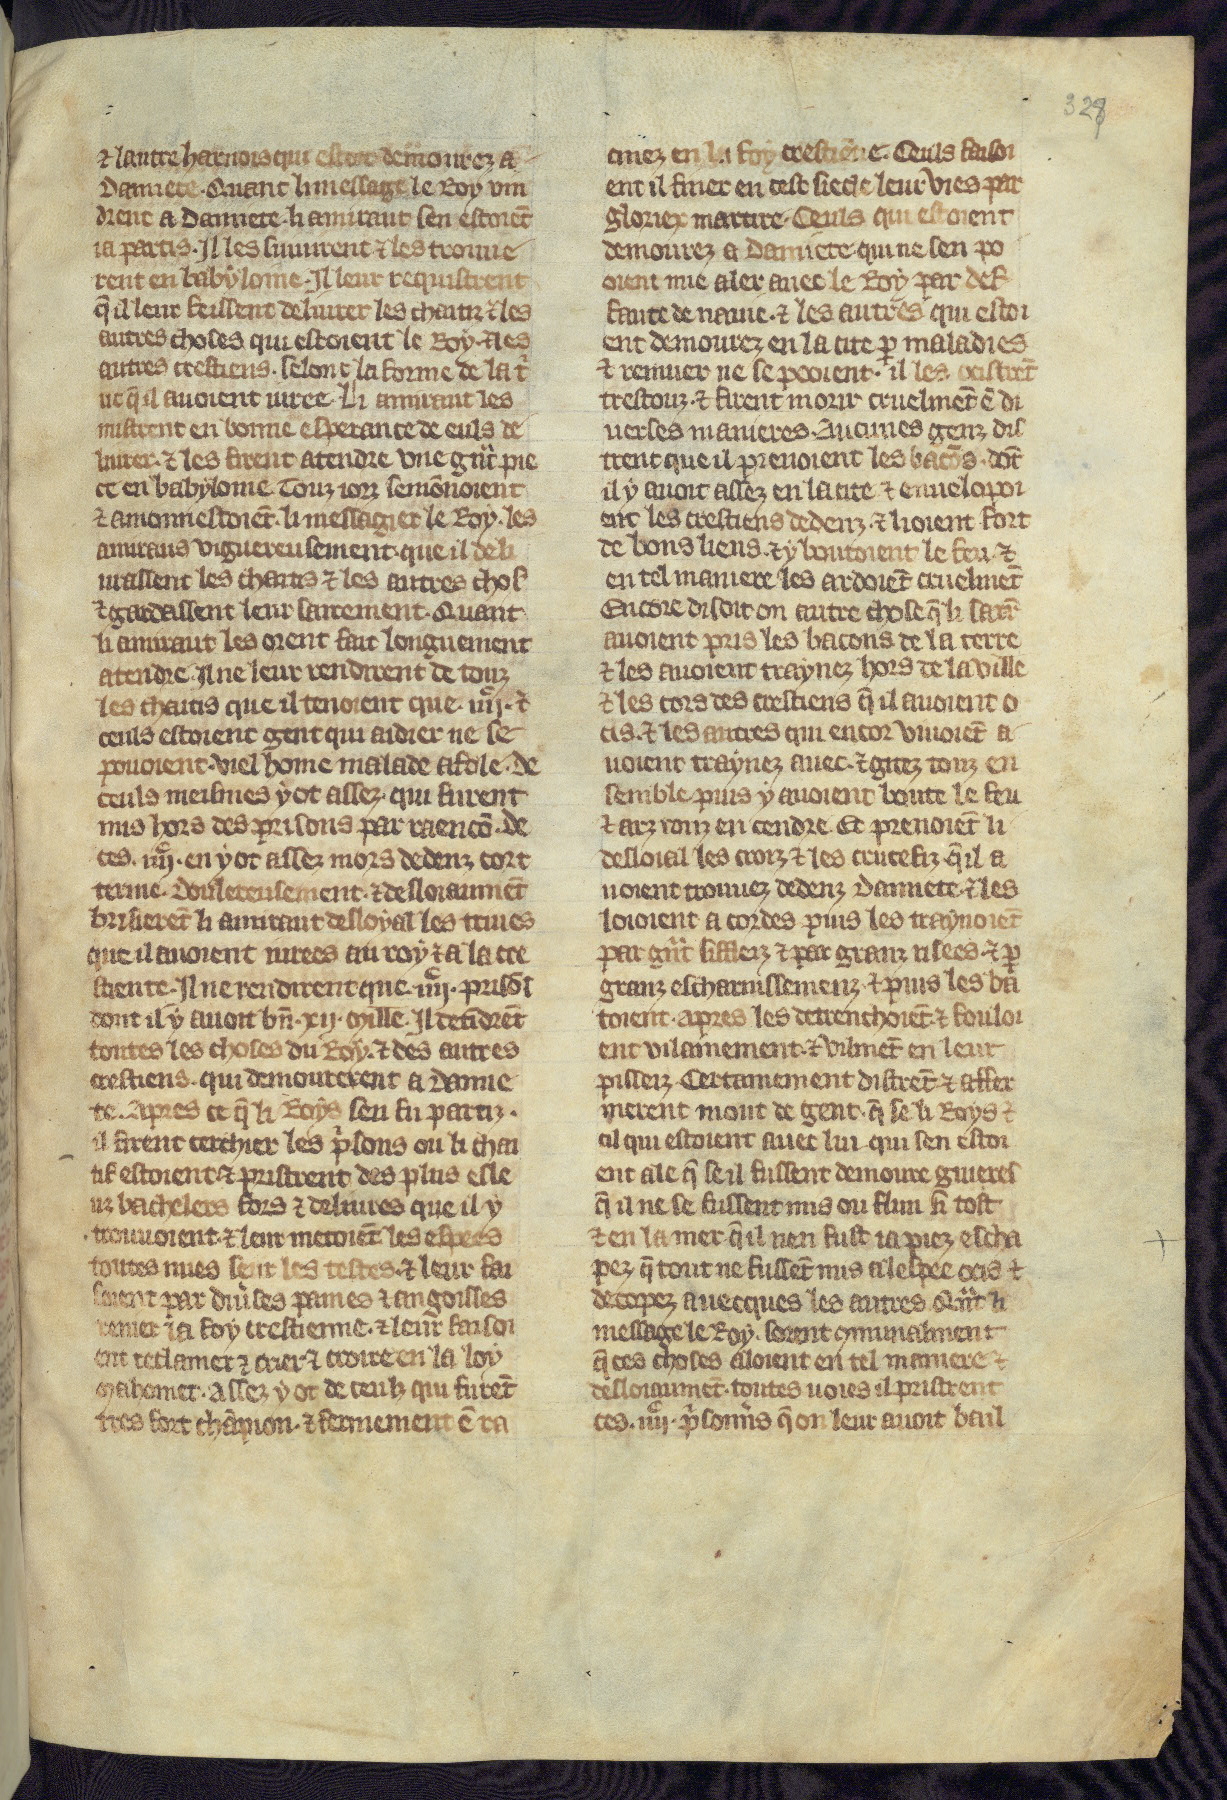 328
⁊ lautre harnois qui estoit demourez a
Damiete. Quant li message le Roy vin
drent a Damiete. li amiraut sen estoiẽt
ia partis. Il les suuirent ⁊ les trouue
rent en babyloine. Il leur requistrent
q̃ il leur feissent deliurer les chaitiz ⁊ les
autres choses qui estoient le Roy. ⁊ les
autres crestiens. selonc la forme de la t̾
ue q̃ il auoient iuree. Li amiraut les
mistrent en bonne esperance de euls de
liurer. ⁊ les firent atendre vne gñt pie
ce en babyloine. Touz iorz semõnoient
⁊ amonnestoiẽt. li messagier le Roy. les
amiraus viguereusement. que il deli
urassent les chaitis ⁊ les autres chos̾
⁊ gardassent leur sairement. Quant
li amiraut les orent fait longuement
atendre. Il ne leur rendirent de touz
les chaitis que il tenoient que .iiij. c̃
ceuls estoient gent qui aidier ne se
pouoient. viel home malade afole. De
ceuls meismes y ot assez. qui furent
mis hors des prisons par raencõ. de
ces .iiij. en y ot assez mors dedenz cort
terme. Douleteusement. ⁊ desloiaumẽt
brisierẽt li amiraut desloyal les triues
que il auoient iurees au roy ⁊ a la cre
stiente. Il ne rendirent que .iiij. prisõs
dont il y auoit bñ .xij. mille. Il retĩdrẽt
toutes les choses du Roy. ⁊ des autres
crestiens. qui demourerent a Damie
te. Apres ce q̃ li Roys sen fu partiz.
il firent cerchier les p̾sons ou li chai
tif estoient ⁊ pristrent des plus esle
uz bachelers fors ⁊ deliures que il y
trouuoient. ⁊ leur metoiẽt les espees
toutes nues seur les testes. ⁊ leur fai
soient par diu̾ses paines ⁊ angoisses
renier la foy crestienne. ⁊ leur faisoi
ent reclamer ⁊ crier ⁊ croire en la loy
mahomet. Assez y ot de ceulz qui furẽt
tres fort chãpion. ⁊ fermement ẽ ra
cinez en la foy crestiẽne. Ceuls faisoi
ent il finer en cest siecle leur vies par
gloriex martire. Ceuls qui estoient
demourez a Damiete qui ne sen po
oient mie aler auec le Roy par def
faute de nauie. ⁊ les autres qui estoi
ent demourez en la cite p̱ maladies
⁊ remuer ne se pooient. il les ocistrẽt
trestouz. ⁊ firent morir cruelmẽt ẽ di
uerses manieres. Aucunes genz dis
trent que il prenoient les bacõs. dõt
il y auoit assez en la cite ⁊ enuelopoi
ent les crestiens dedenz. ⁊ lioient fort
de bons liens. ⁊ y boutoient le feu. ⁊
en tel maniere les ardoiẽt cruelmẽt
Encore disoit on autre chose q̃ li sarr̾
auoient pris les bacons de la terre
⁊ les auoient traynez hors de la ville
⁊ les cors des crestiens q̃ il auoient o
cis. ⁊ les autres qui encor viuoiẽt a
uoient traynez auec. ⁊ gitez touz en
semble. puis y auoient boute le feu
⁊ arz touz en cendre. Et prenoiẽt li
desloial les croiz ⁊ les crucefiz. q̃ il a
uoient trouuez dedenz Damiete. ⁊ les
loioient a cordes. puis les traynoiẽt
par gñt siffleiz ⁊ par granz risees. ⁊ p̱
granz escharnissemenz. ⁊ puis les ba
toient. apres les detrenchoiẽt. ⁊ fouloi
ent vilainement. ⁊ vilmẽt en leur
pisseiz. Certainement distrẽt ⁊ affer
merent mout de gent. q̃ se li Roys ⁊
cil qui estoient auec lui. qui sen estoi
ent ale q̃ se il fussent demoure guieres
q̃ il ne se fussent mis ou flun si tost
⁊ en la mer q̃ il nen fust ia piez escha
pez. q̃ tout ne fussẽt mis a lespee ocis ⁊
decopez auecques les autres. Qñt li
message le Roy. sorent cõmunalment
q̃ ces choses aloient en tel maniere ⁊
desloiaumẽt. toutes uoies il pristrent
ces .iiij. p̾sonn̾s q̃ on leur auoit bail